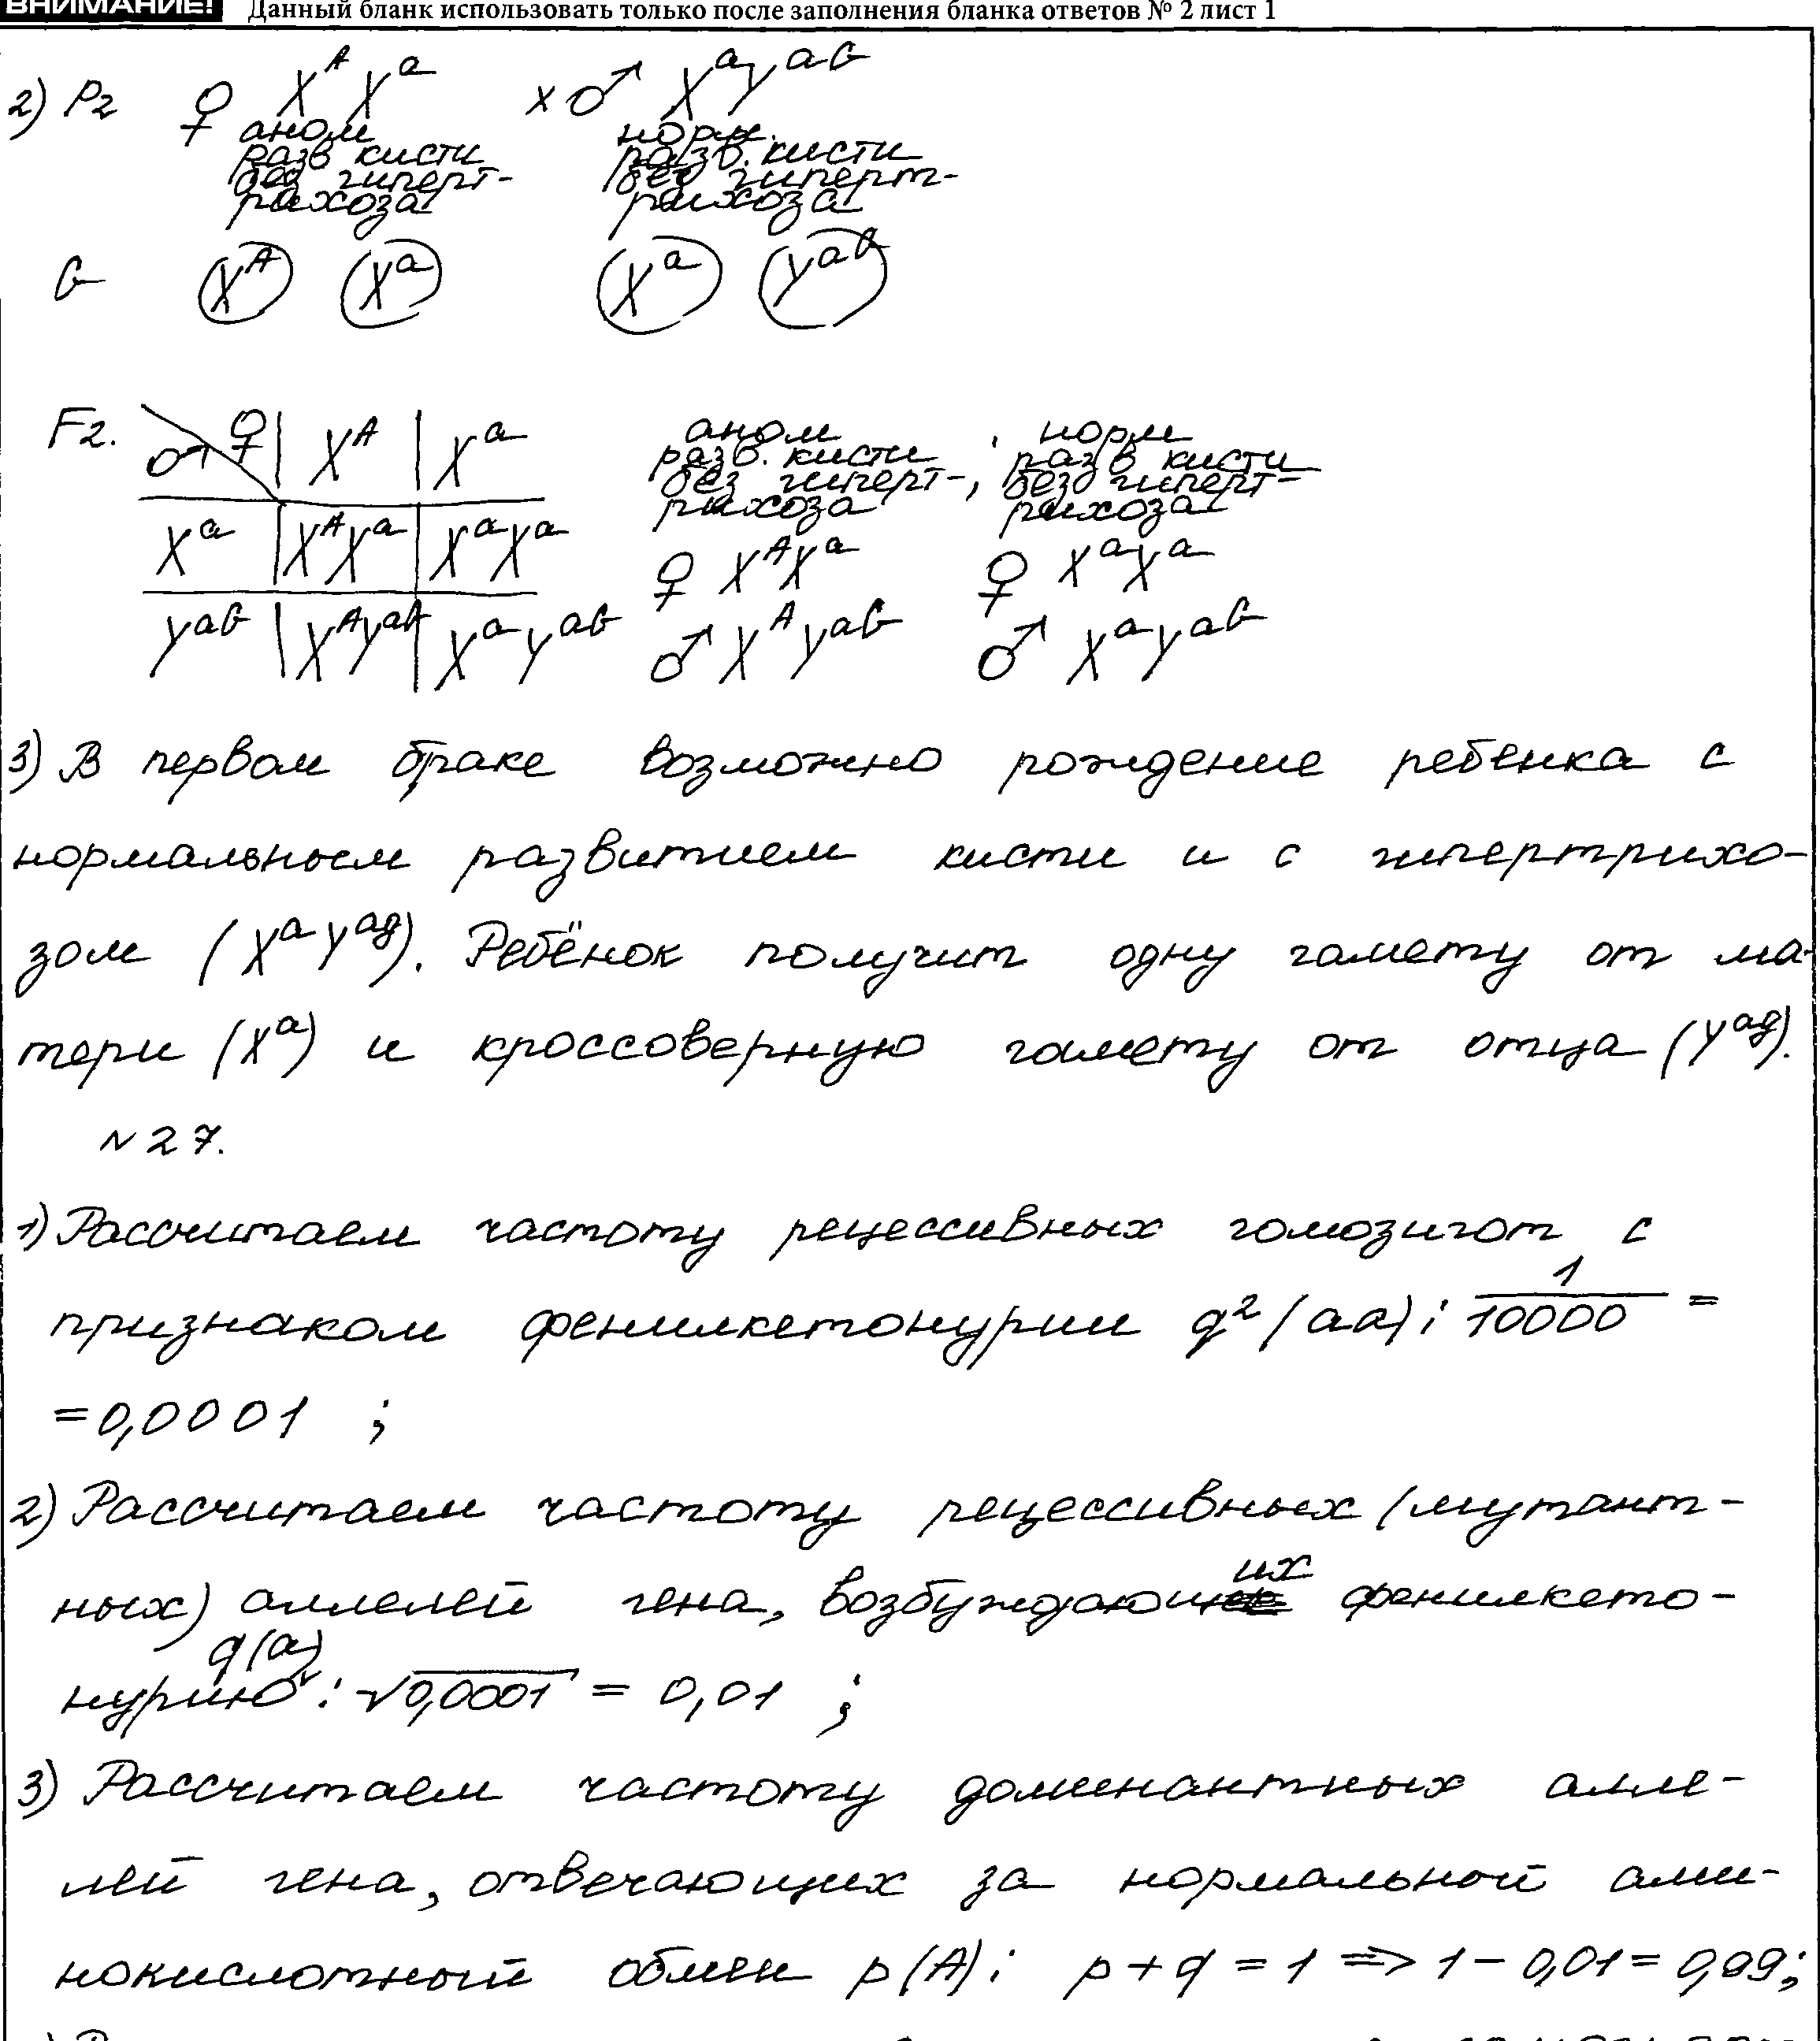 ВНИМАНИЕ! Данный бланк использовать только после заполнения бланка ответов № 2 лист 1
2) P2 ♀ X^A X^a x ♂ X^a Y^aG
аном норм.
разв кисти разв. кисти
без гиперт- без гиперт-
рихоза рихоза
G X^A X^a X^a Y^aG
F2. ♂ ♀ | X^A | X^a
X^a | X^A X^a | X^a X^a
Y^aG | X^A Y^aG | X^a Y^aG
аном , норм
разв. кисти разв кисти
без гиперт-, без гиперт-
рихоза рихоза
♀ X^A X^a ♀ X^a X^a
♂ X^A Y^aG ♂ X^a Y^aG
3) В первом браке возможно рождение ребенка с
нормальным развитием кисти и с гипертрихо-
зом (X^a Y^ag). Ребёнок получит одну гамету от ма-
тери (X^a) и кроссоверную гамету от отца (Y^ag).
N27.
1) Рассчитаем частоту рецессивных гомозигот с
признаком фенилкетонурии q²(aa): 1/10000 =
=0,0001 ;
2) Рассчитаем частоту рецессивных (мутант-
ных) аллелей гена, возбуждающих фенилкето-
нурию q(a): √0,0001 = 0,01 ;
3) Рассчитаем частоту доминантных алле-
лей гена, отвечающих за нормальной ами-
нокислотный обмен p(A): p+q = 1 => 1-0,01=0,99;